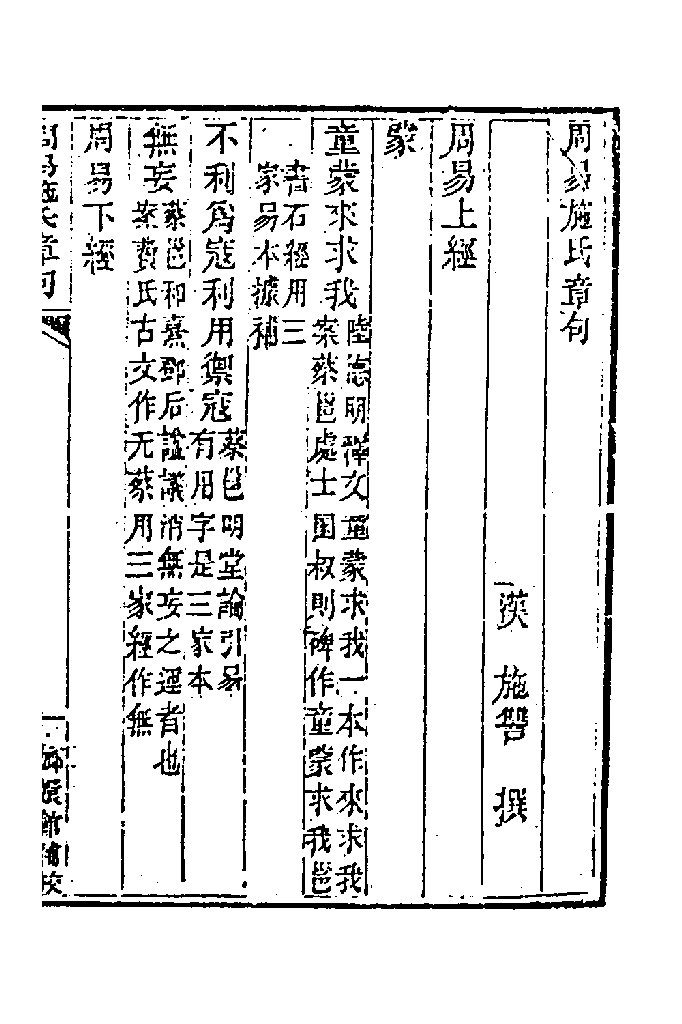 周易施氏章句
漢 施讐 撰
周易上經
蒙
童蒙來求我陸德明釋文童蒙求我一本作來求我
案蔡邕處士圂叔則碑作童蒙求我邕
書石經用三
家易本據補
不利爲寇利用禦寇蔡邕明堂論引易
有用字是三家本
無妄蔡邕和熹鄧后諡議消無妄之運者也
案費氏古文作无蔡用三家經作無
周易下經
周易施氏章句
一
嫏嬛館補校